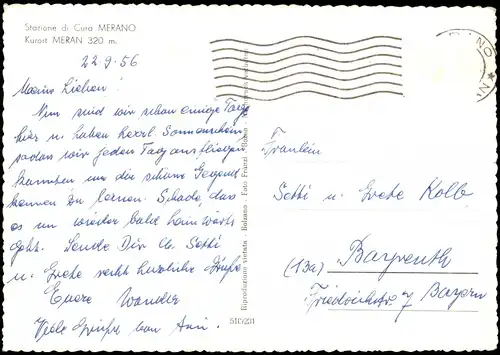 Stazione di Cura MERANO
Kurort MERAN 320 m.
22.9.56
Meine Lieben!
Nun sind wir schon einige Tage
hier u. haben herrl. Sonnenschein
sodass wir jeden Tag ausfliegen
konnten um die schöne Gegend
kennen zu lernen. Schade, das
es nun wieder bald heimwärts
geht. Sende Dir lb. Setti
u. Grete recht herzliche Grüße
Eure Wander
Viele Grüsse von Ani.
Riproduzione vietata - Bolzano - Foto Fränzl - Bozen
510/231
Fräulein
Setti u. Grete Kolb
(13a) Bayreuth
Bayern